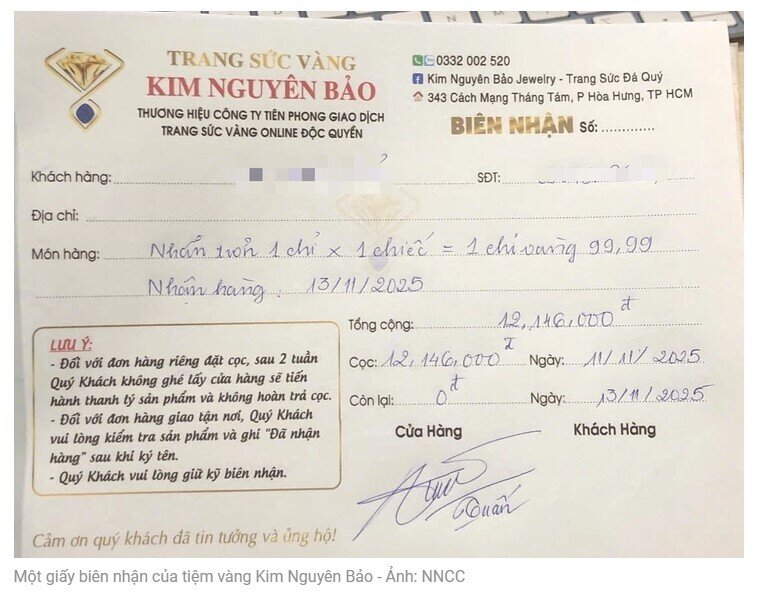 TRANG SỨC VÀNG
KIM NGUYÊN BẢO
THƯƠNG HIỆU CÔNG TY TIÊN PHONG GIAO DỊCH
TRANG SỨC VÀNG ONLINE ĐỘC QUYỀN
0332 002 520
Kim Nguyên Bảo Jewelry - Trang Sức Đá Quý
343 Cách Mạng Tháng Tám, P Hòa Hưng, TP HCM
BIÊN NHẬN Số:.............
Khách hàng:
SĐT:
Địa chỉ:
Món hàng: Nhẫn trơn 1 chỉ x 1 chiếc = 1 chỉ vàng 99,99
Nhận hàng: 13/11/2025
Tổng cộng: 12,146,000đ
Cọc: 12,146,000đ Ngày: 11/11/2025
Còn lại: 0đ Ngày: 13/11/2025
LƯU Ý:
- Đối với đơn hàng riêng đặt cọc, sau 2 tuần
Quý Khách không ghé lấy cửa hàng sẽ tiến
hành thanh lý sản phẩm và không hoàn trả cọc.
- Đối với đơn hàng giao tận nơi, Quý Khách
vui lòng kiểm tra sản phẩm và ghi "Đã nhận
hàng" sau khi ký tên.
- Quý Khách vui lòng giữ kỹ biên nhận.
Cửa Hàng Khách Hàng
Quấn
Cảm ơn quý khách đã tin tưởng và ủng hộ!
Một giấy biên nhận của tiệm vàng Kim Nguyên Bảo - Ảnh: NNCC